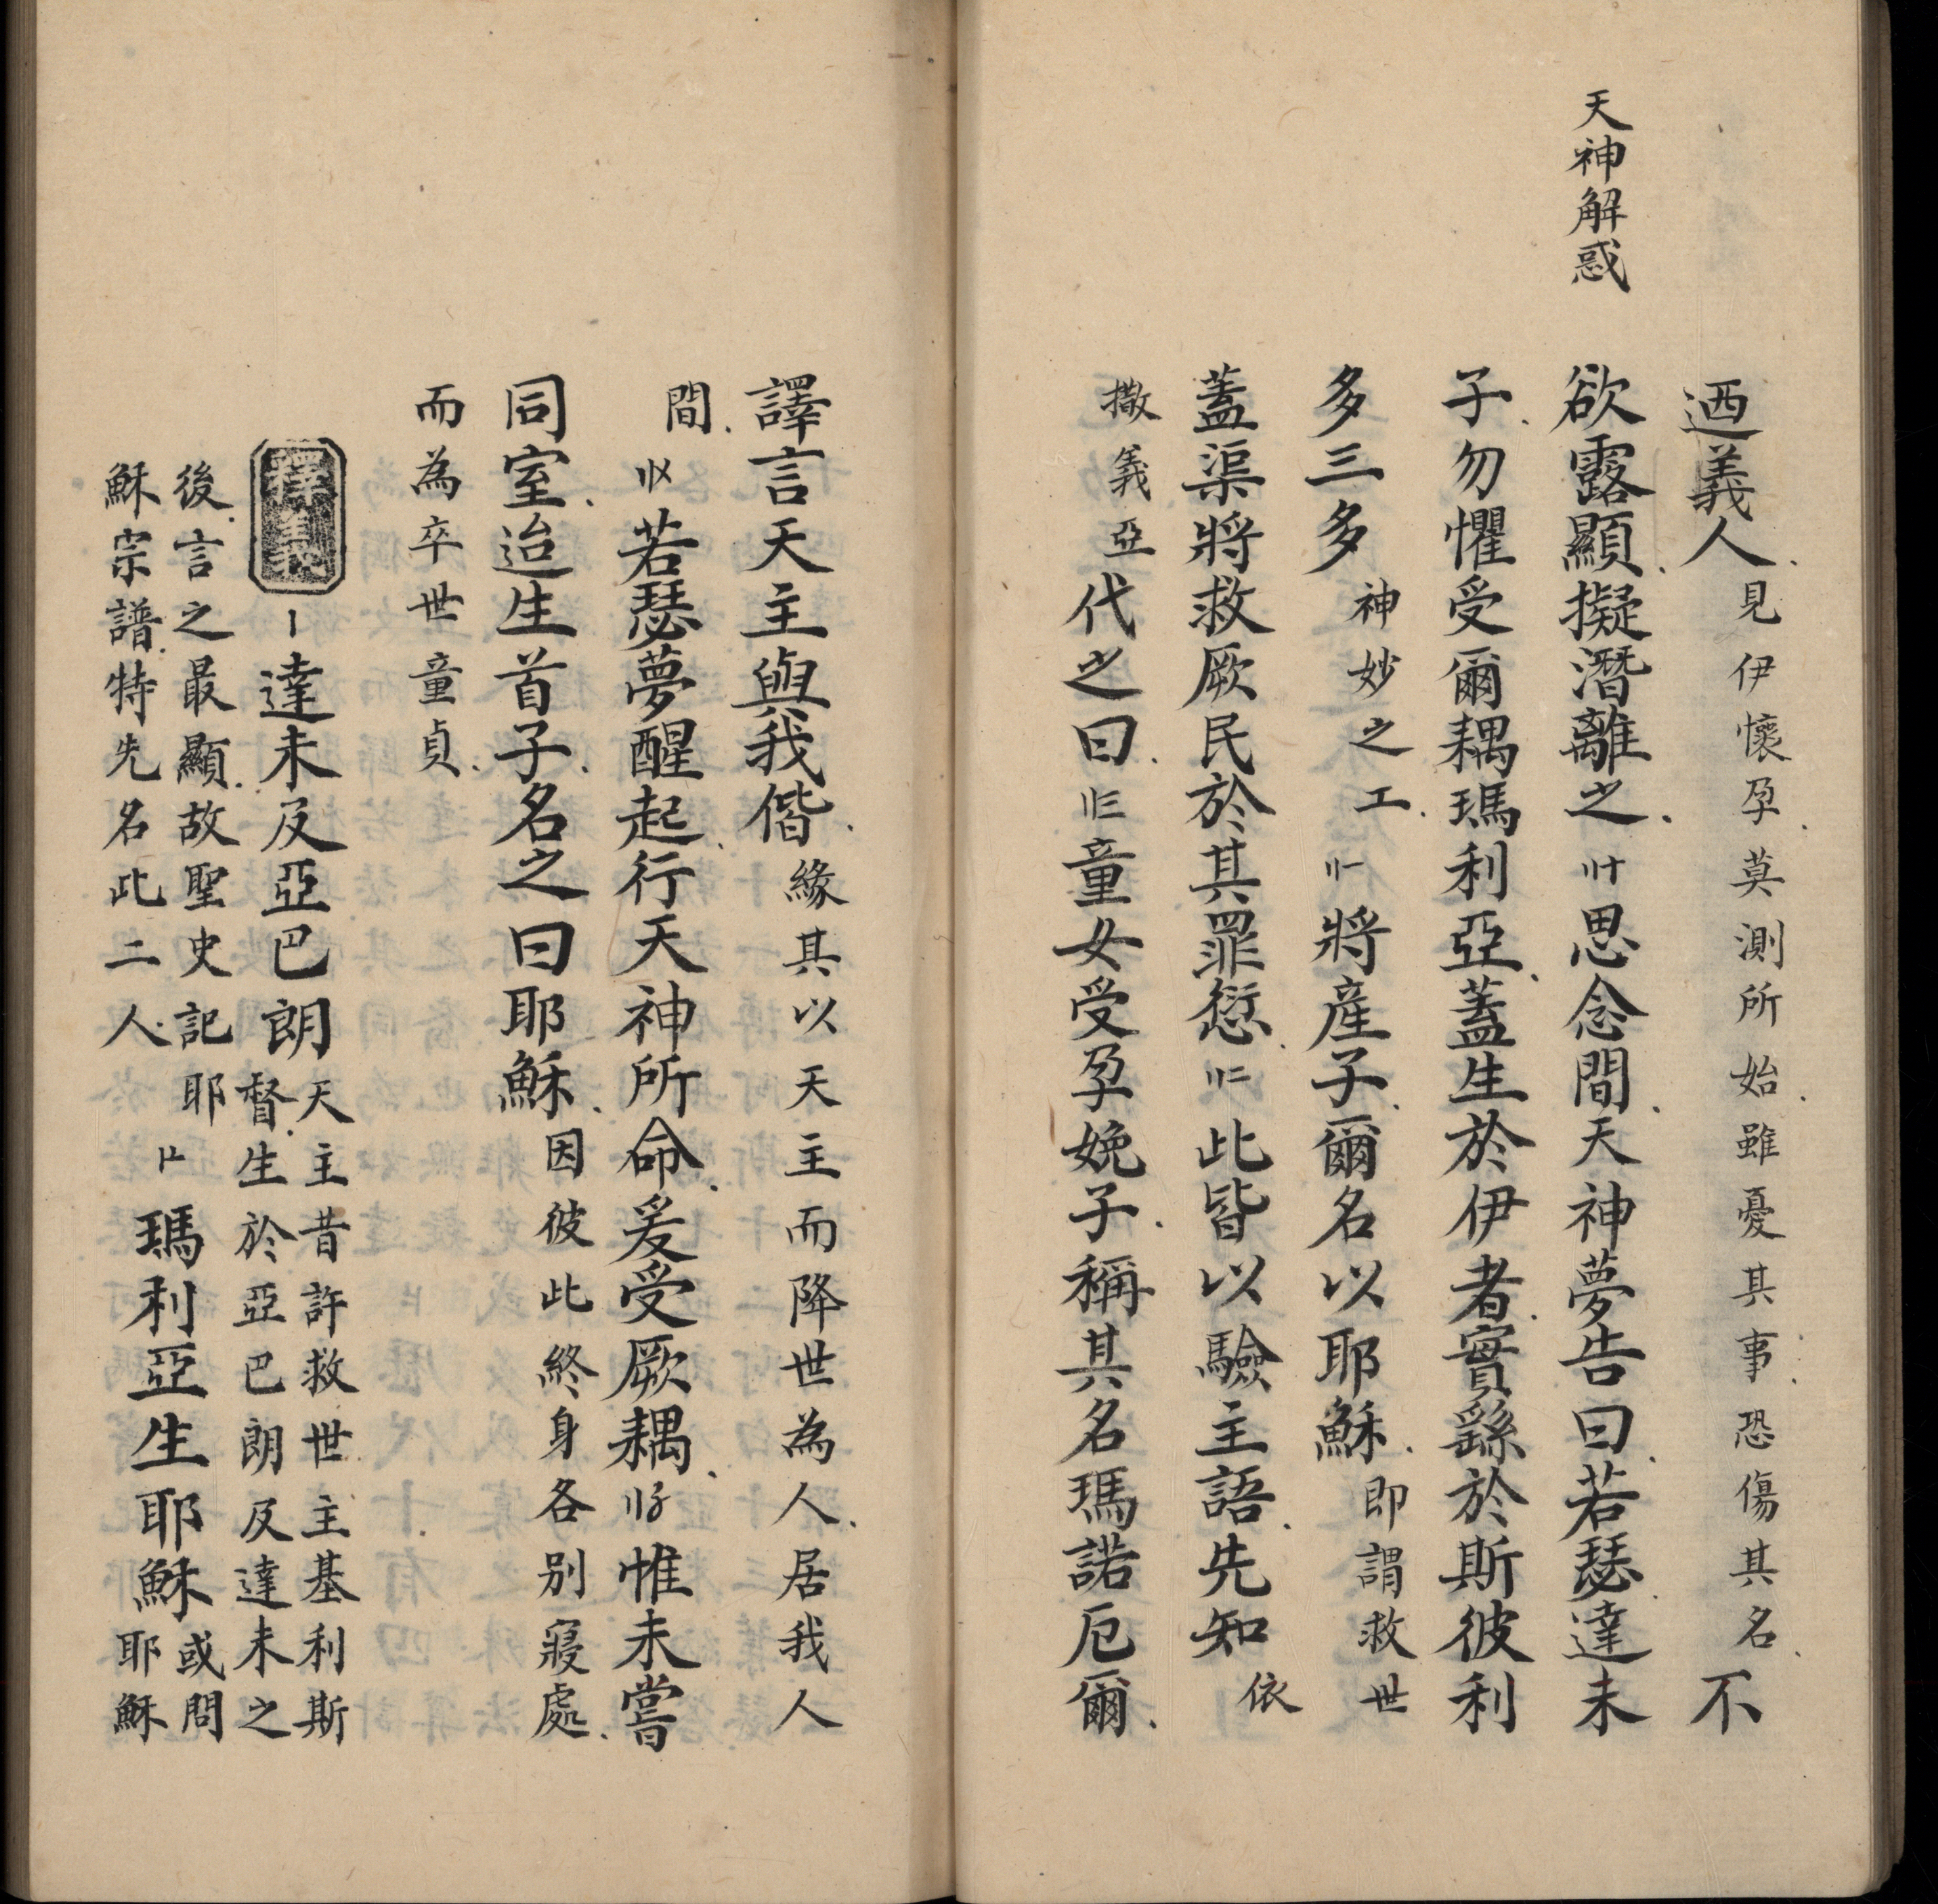 天神解惑
迺義人見伊懷孕莫測所始雖憂其事恐傷其名不
欲露顯擬潛離之〢十思念間天神夢告曰若瑟達未
子勿懼受爾耦瑪利亞蓋生於伊者實繇於斯彼利
多三多神妙之工〢一將產子爾名以耶穌即謂救世
蓋渠將救厥民於其罪愆〢二此皆以驗主語先知依
撒義亞代之曰〢三童女受孕娩子稱其名瑪諾厄爾
譯言天主與我偕緣其以天主而降世為人居我人
間〢〤若瑟夢醒起行天神所命爰受厥耦〢〥惟未嘗
同室迨生首子名之曰耶穌因彼此終身各別寢處
而為卒世童貞
釋義〡達未及亞巴朗天主昔許救世主基利斯
督生於亞巴朗及達未之
後言之最顯故聖史記耶
穌宗譜特先名此二人〡〦瑪利亞生耶穌或問
耶穌